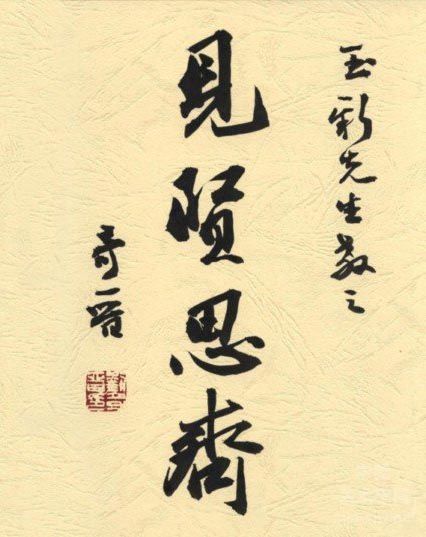 玉彩先生教之
見賢思齊
奇晋